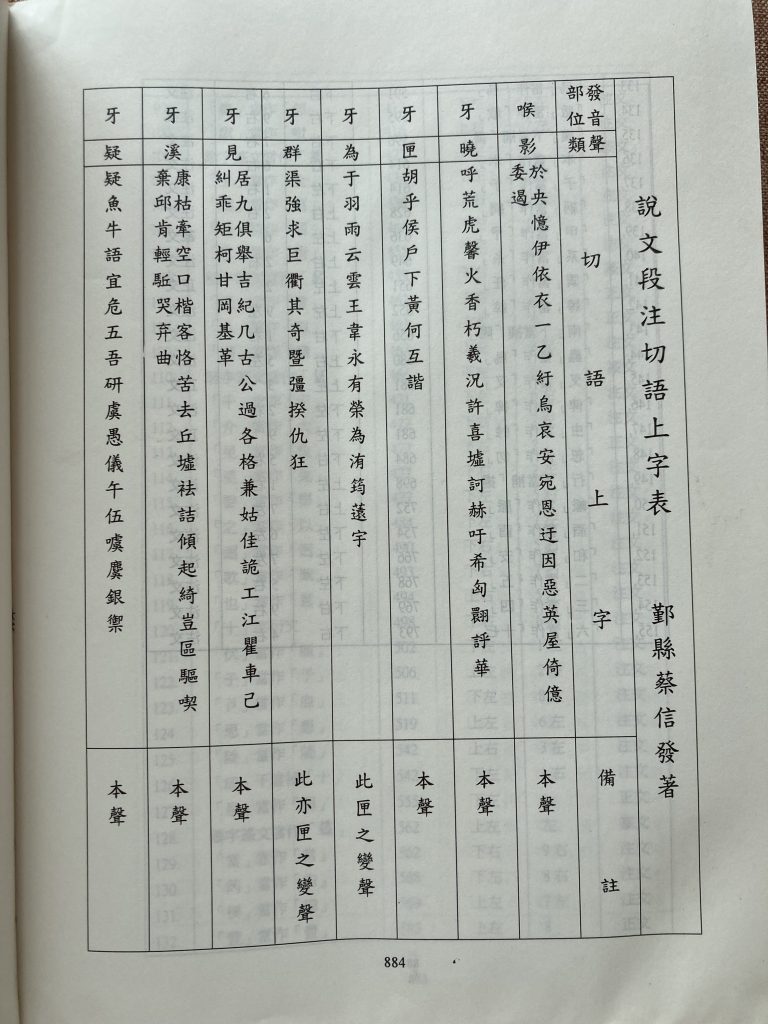 說文段注切語上字表　鄞縣蔡信發著
發音部位
聲類
切語上字
備註
喉
影
於央憶伊依衣一乙紆烏哀安宛恩迂因惡英屋倚億
委遏
本聲
牙
曉
呼荒虎馨火香朽羲況許喜墟訶赫吁希匈翾誶華
本聲
牙
匣
胡乎侯戶下黃何互諧
本聲
牙
為
于羽雨云雲王韋永有榮為洧筠薳宇
此匣之變聲
牙
群
渠強求巨衢其奇暨彊揆仇狂
此亦匣之變聲
牙
見
居九俱舉吉紀几古公過各格兼姑佳詭工江瞿車己
糾乖矩柯甘岡基革
本聲
牙
溪
康枯牽空口楷客恪苦去丘墟袪詰傾起綺豈區驅喫
棄邱肯輕駈哭弃曲
本聲
牙
疑
疑魚牛語宜危五吾研虞愚儀午伍噳麌銀禦
本聲
884